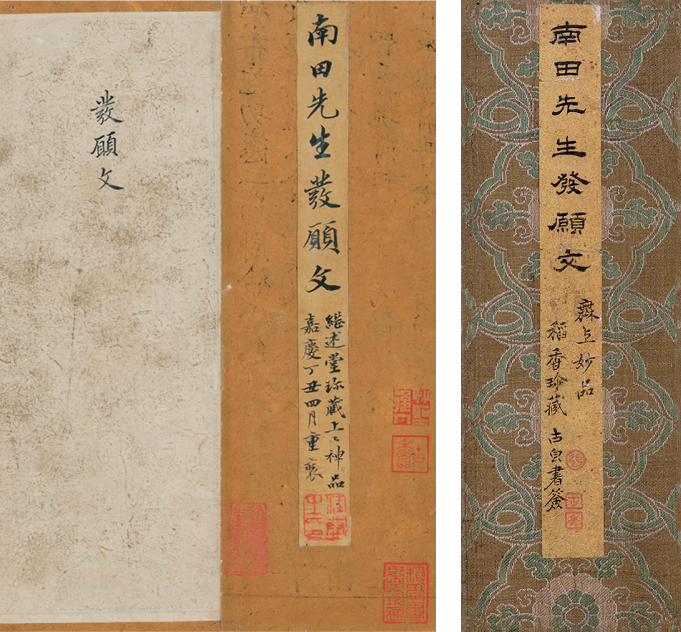 南田先生發願文
無上妙品
稻香珍藏 古泉書簽
南田先生發願文
繼述堂珍藏上〻神品
嘉慶丁丑四月重裝
發願文